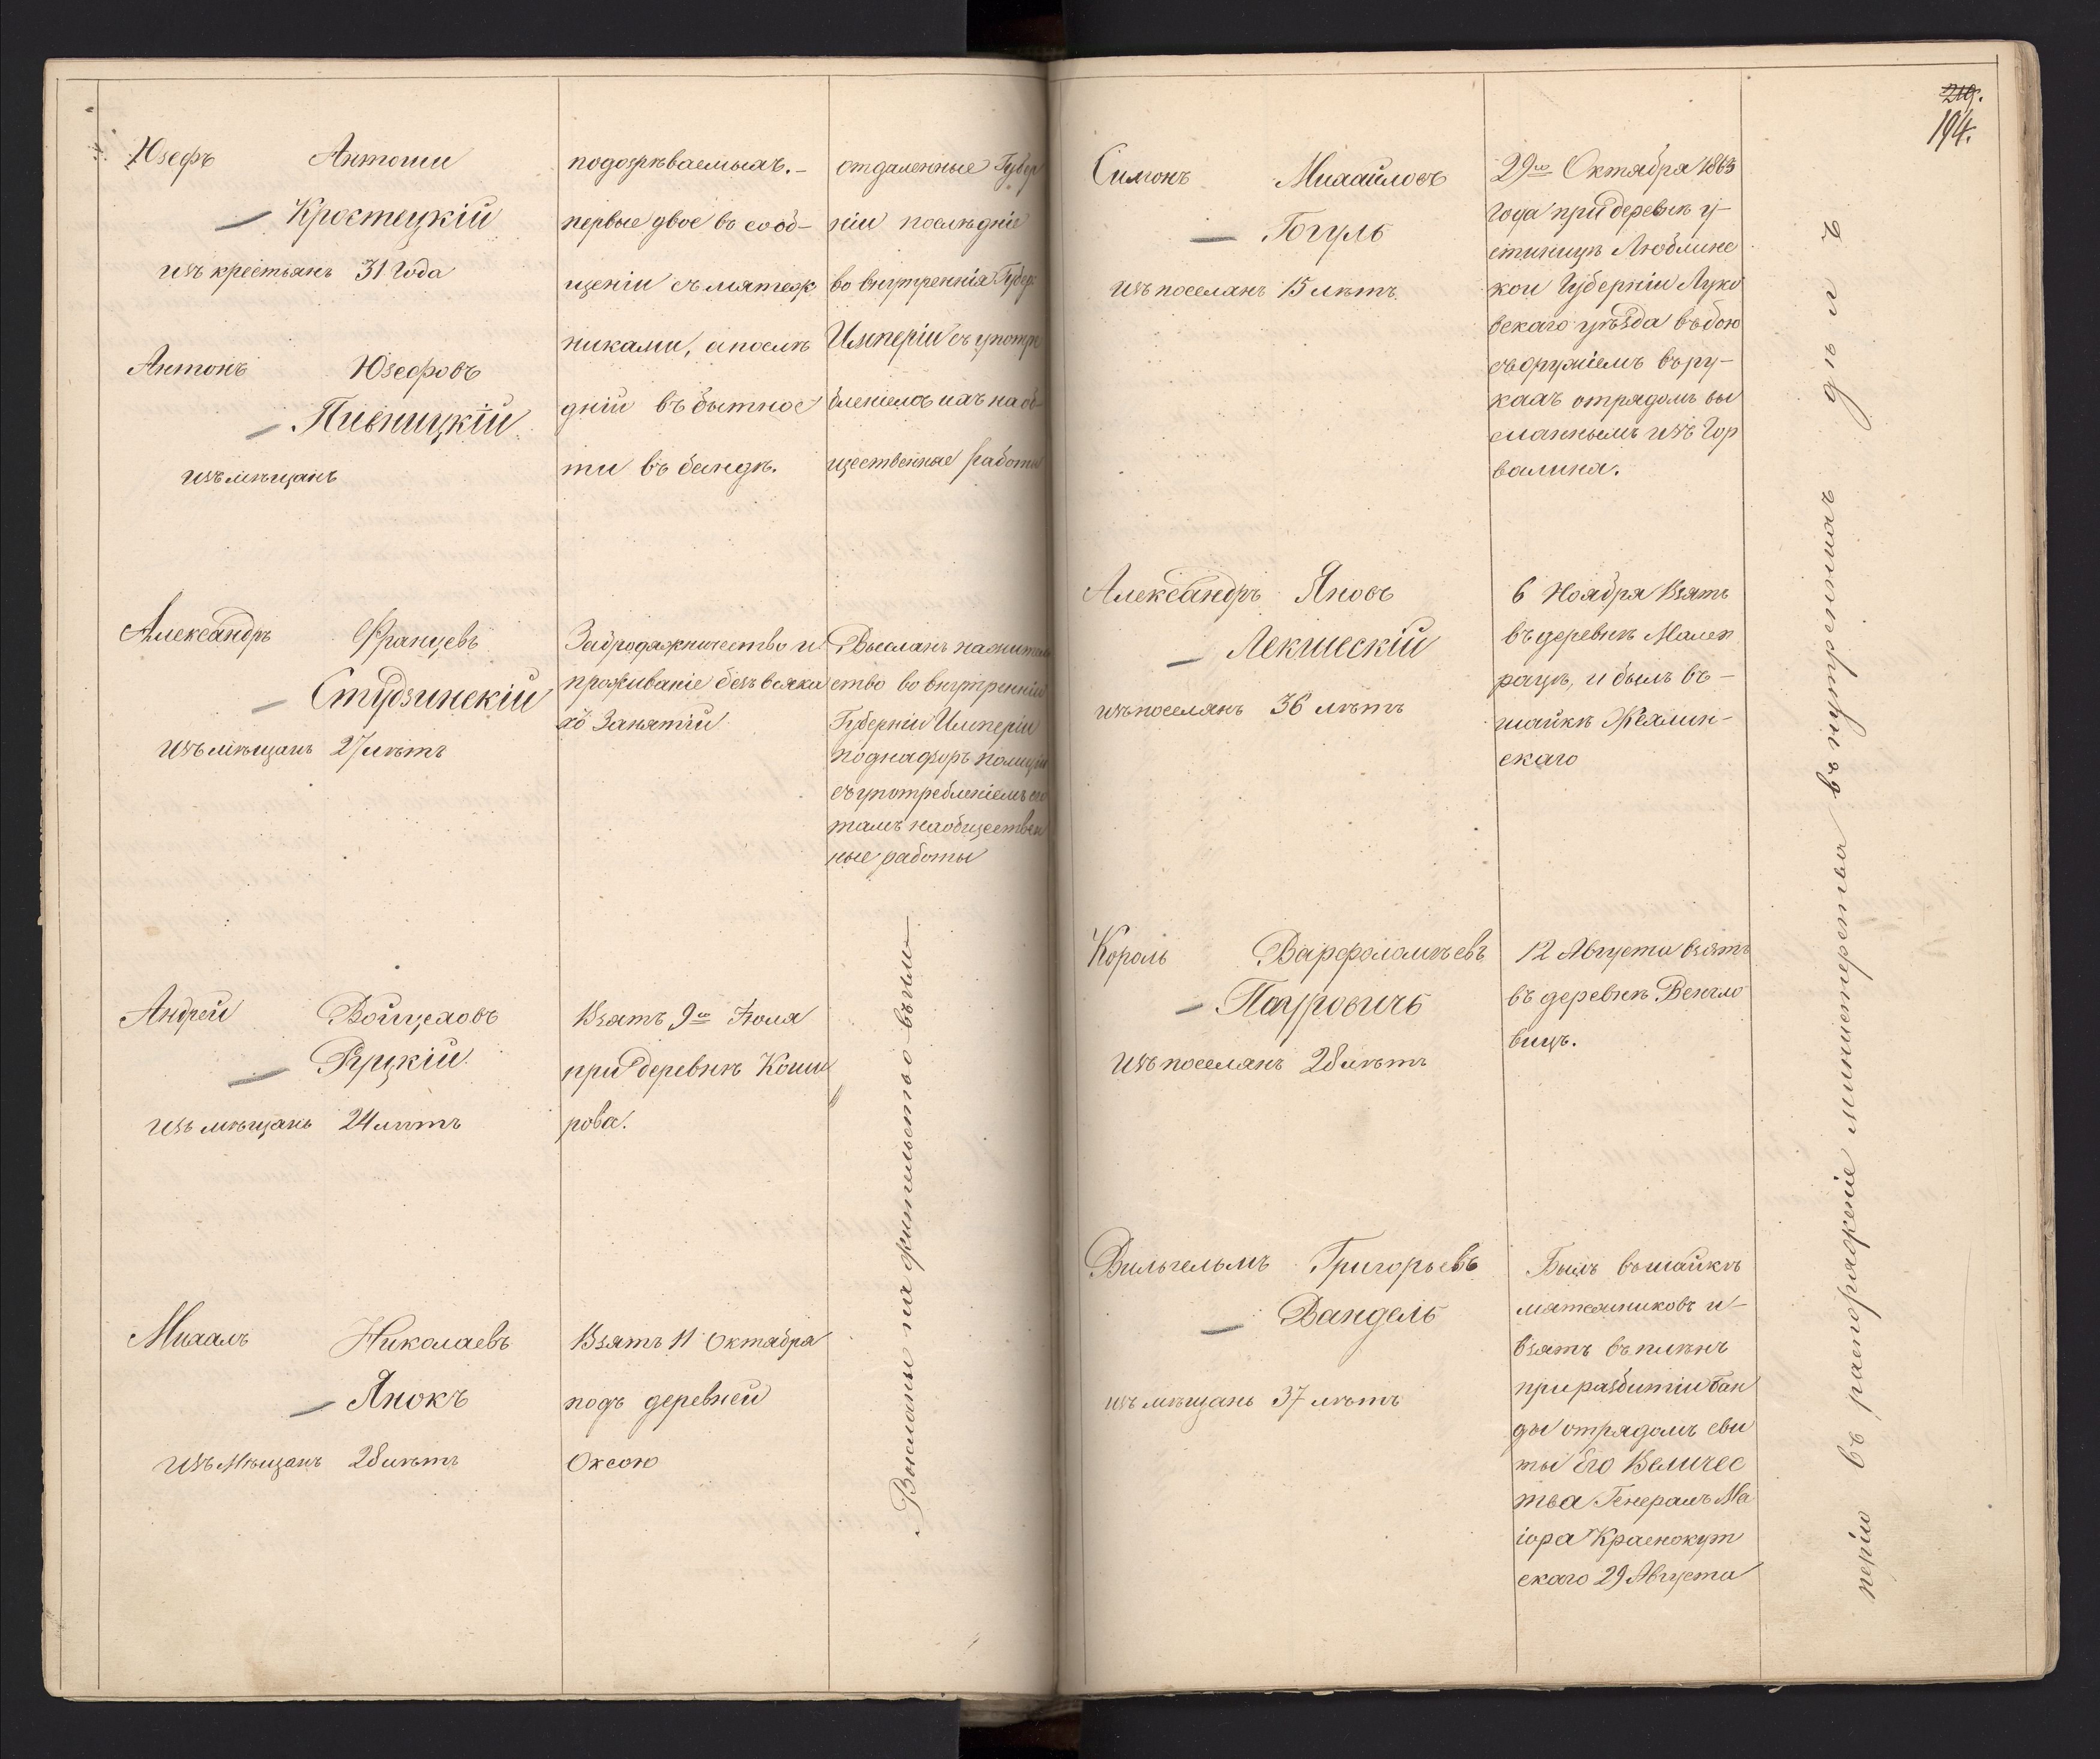 Юзефъ Антоши
Кростецкій
изъ крестьянъ 31 Года
Антонъ Юзефовъ
Пивницкій
изъ мѣщанъ
подозрѣваемыхъ. –
первые двое въ сооб–
щеніи съ мятеж
никами, а послѣ
дній въ бытнос
ти въ бандѣ.
отдаленные Губер
ніи послѣдніе
во внутреннія Губер.
Имперіи съ упот
бленіемъ ихъ на об–
щественные работы
Александръ Францевъ
Студзинскій
изъ мѣщанъ 27 лѣтъ
За бродяжничество и
проживаніе безъ всяка
го Занятій
Высланъ на житель
ство во внутренніе
Губерніи Имперіи
подъ надзоръ полиціи
съ употребленіемъ его
тамъ на обществен
ные работы
Андрей Войцеховъ
Руцкій
изъ мѣщанъ 24 лѣтъ
Взятъ 9го Іюля
при деревнѣ Коши
рова.
Михалъ Николаевъ
Янокъ
изъ Мѣщанъ 28 лѣтъ
Взятъ 11 Октября
подъ деревней
Оксою
Высланы на жительство въ Им–
219.
194.
Симонъ Михайловъ
Гогуль
изъ поселянъ 15 лѣтъ.
29го Октября 1863
Года при деревнѣ У–
стиницѣ Люблинс
кой Губерніи Луко
вскаго уѣзда въ бою
съ оружіемъ въ ру–
кахъ отрядомъ вы
сланнымъ изъ Гор
валина.
Александръ Яновъ
Лекшескій
изъ поселянъ 36 лѣтъ
6 Ноября Взятъ
въ деревнѣ Малех
рацѣ, и былъ въ –
шайкѣ Жехлин–
скаго
Король Варфоломѣевъ
Пауровичъ
Изъ поселянъ 28 лѣтъ
12 Августа взятъ
въ деревнѣ Венгло
вицъ.
Вильгельмъ Григорьевъ
Вандель
изъ мѣщанъ 37 лѣтъ
Былъ въ шайкѣ
мятежниковъ и –
взятъ въ плѣнъ
при разбитіи бан
ды отрядомъ сви
ты Его Величес
тва Генералъ Ма
іора Краснокут
скаго 29 Августа
перію въ распоряженіе министерства внутреннихъ дѣлъ